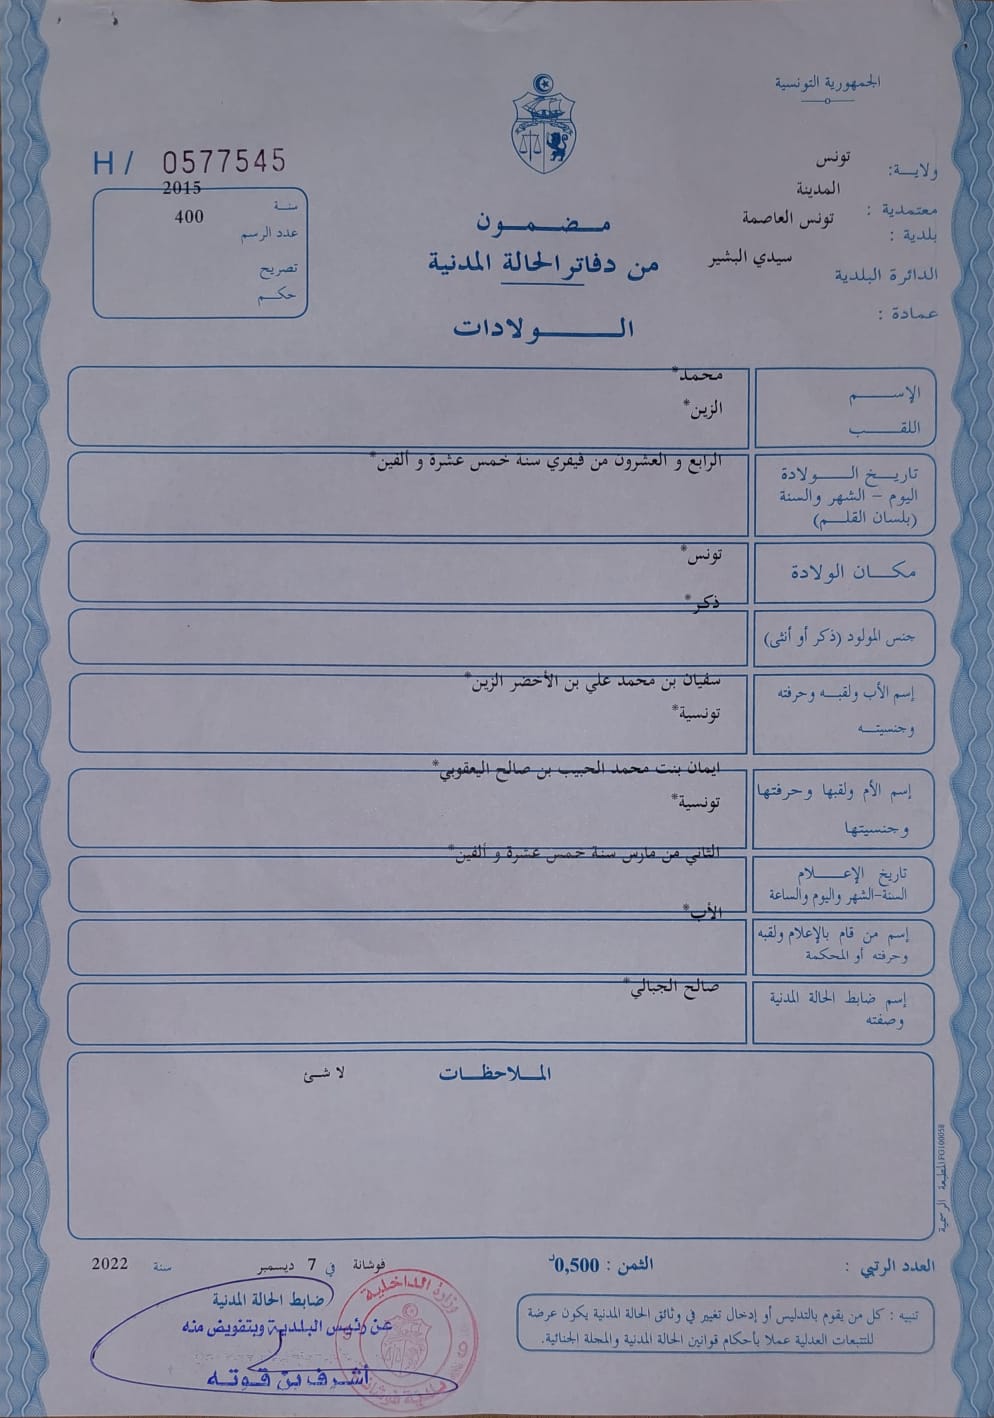 الجمهورية التونسية
H/ 0577545
ولاية: تونس
معتمدية : المدينة
بلدية : تونس العاصمة
الدائرة البلدية سيدي البشير
عمادة :
سنة 2015
عدد الرسم 400
تصريح
حكم
مضمون
من دفاتر الحالة المدنية
الولادات
الإسم محمد*
اللقب الزين*
تاريخ الولادة
اليوم - الشهر والسنة
(بلسان القلم)
الرابع و العشرون من فيفري سنة خمس عشرة و ألفين*
مكان الولادة تونس*
جنس المولود (ذكر أو أنثى) ذكر*
إسم الأب ولقبه وحرفته
وجنسيته
سفيان بن محمد علي بن الأخضر الزين*
تونسية*
إسم الأم ولقبها وحرفتها
وجنسيتها
ايمان بنت محمد الحبيب بن صالح اليعقوبي*
تونسية*
تاريخ الإعلام
السنة-الشهر واليوم والساعة
الثاني من مارس سنة خمس عشرة و ألفين*
إسم من قام بالإعلام ولقبه
وحرفته أو المحكمة
الأب*
إسم ضابط الحالة المدنية
وصفته
صالح الجبالي*
الملاحظات
لا شئ
المطبعة الرسمية
العدد الرتبي :
الثمن : 0,500د
فوشانة في 7 ديسمبر سنة 2022
تنبيه : كل من يقوم بالتدليس أو إدخال تغيير في وثائق الحالة المدنية يكون عرضة
للتتبعات العدلية عملا بأحكام قوانين الحالة المدنية والمجلة الجنائية.
ضابط الحالة المدنية
عن رئيس البلدية وبتفويض منه
أشرف بن قوته
وزارة الداخلية